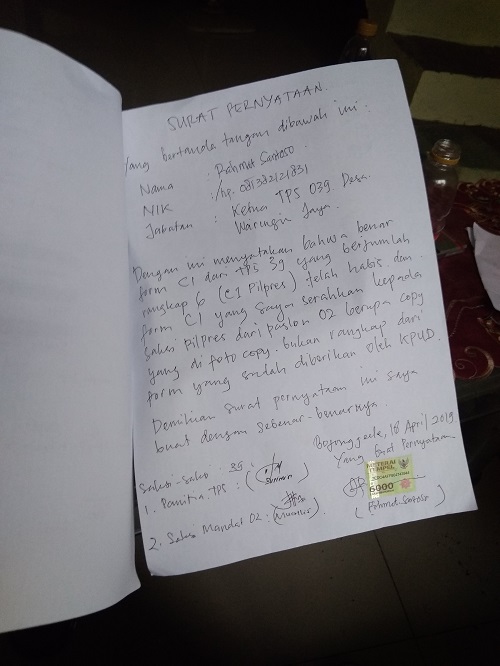 SURAT PERNYATAAN.
Yang bertanda tangan dibawah ini :
Nama : Rahmat Santoso
NIK : /hp.
Jabatan : Ketua TPS 039. Desa.
Waringin Jaya.
Dengan ini menyatakan bahwa benar
form C1 dari TPS 39 yang berjumlah
rangkap 6 (C1 Pilpres) telah habis dan
form C1 yang saya serahkan kepada
saksi pilpres dari paslon 02 berupa copy
yang di foto copy. bukan rangkap dari
form yang sudah diberikan oleh KPUD.
Demikian surat pernyataan ini saya
buat dengan sebenar-benarnya.
Bojonggede, 18 April 2019
Yang buat Pernyataan
Saksi-saksi
1. Panitia TPS 39 :
METERAI TEMPEL
6000
2. Saksi Mandat 02 :
(Rahmat Santoso)